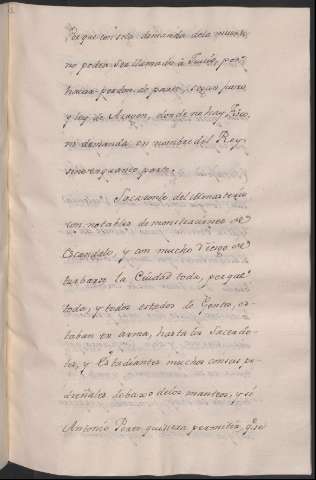 Porque con sola demanda de la muerte,
no podra ser llamado à Juicio, por
haver perdon de parte, segun fuero,
y ley de Aragon, donde no hay Fisco,
ni demanda en nombre del Rey
sino en quanto parte.
Sacaronle del Monasterio
con notables demonstraciones de
Escandalo, y con mucho riesgo de
turbarse la Ciudad toda, porque
toda, y todos estados de Gente, es-
taban en arma, hasta los Sacerdo-
tes, y Estudiantes muchos con sus pe-
dreñales debaxo de los manteos, y si
Antonio Perez quisiera permitir, q.e se